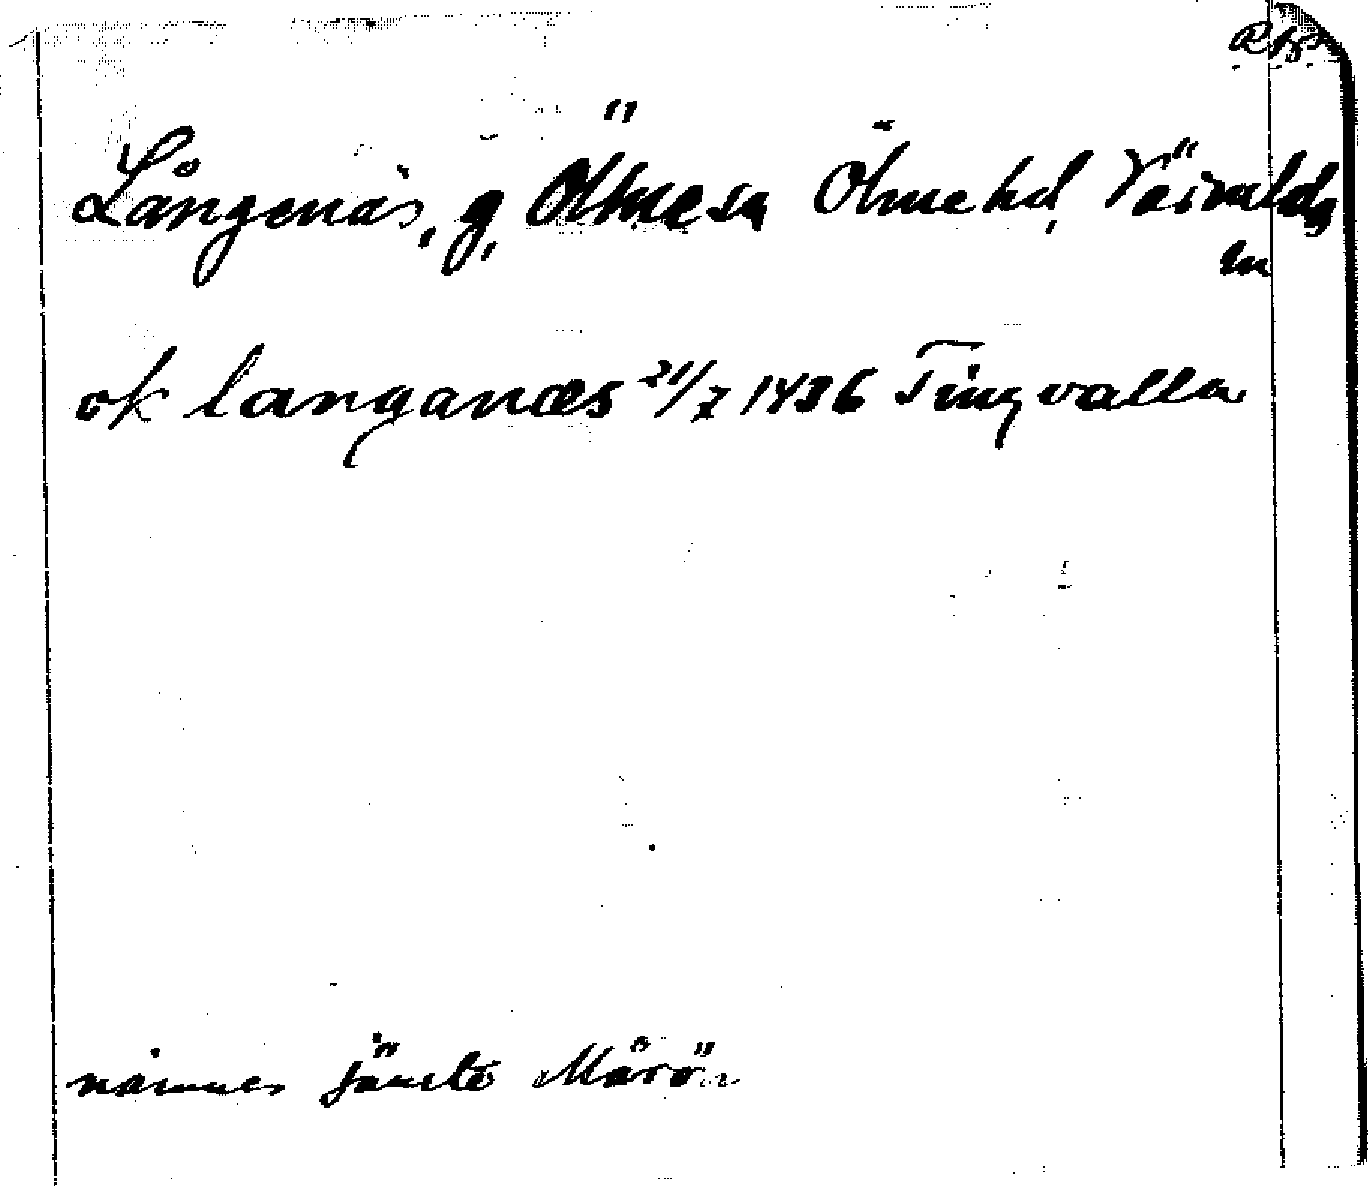 Långenäs, g, Ölmesn Ölmehd, Väsnulds
ln
ok langanæs 21/7 1436 Tingvalla
nämnes jämte Mårön